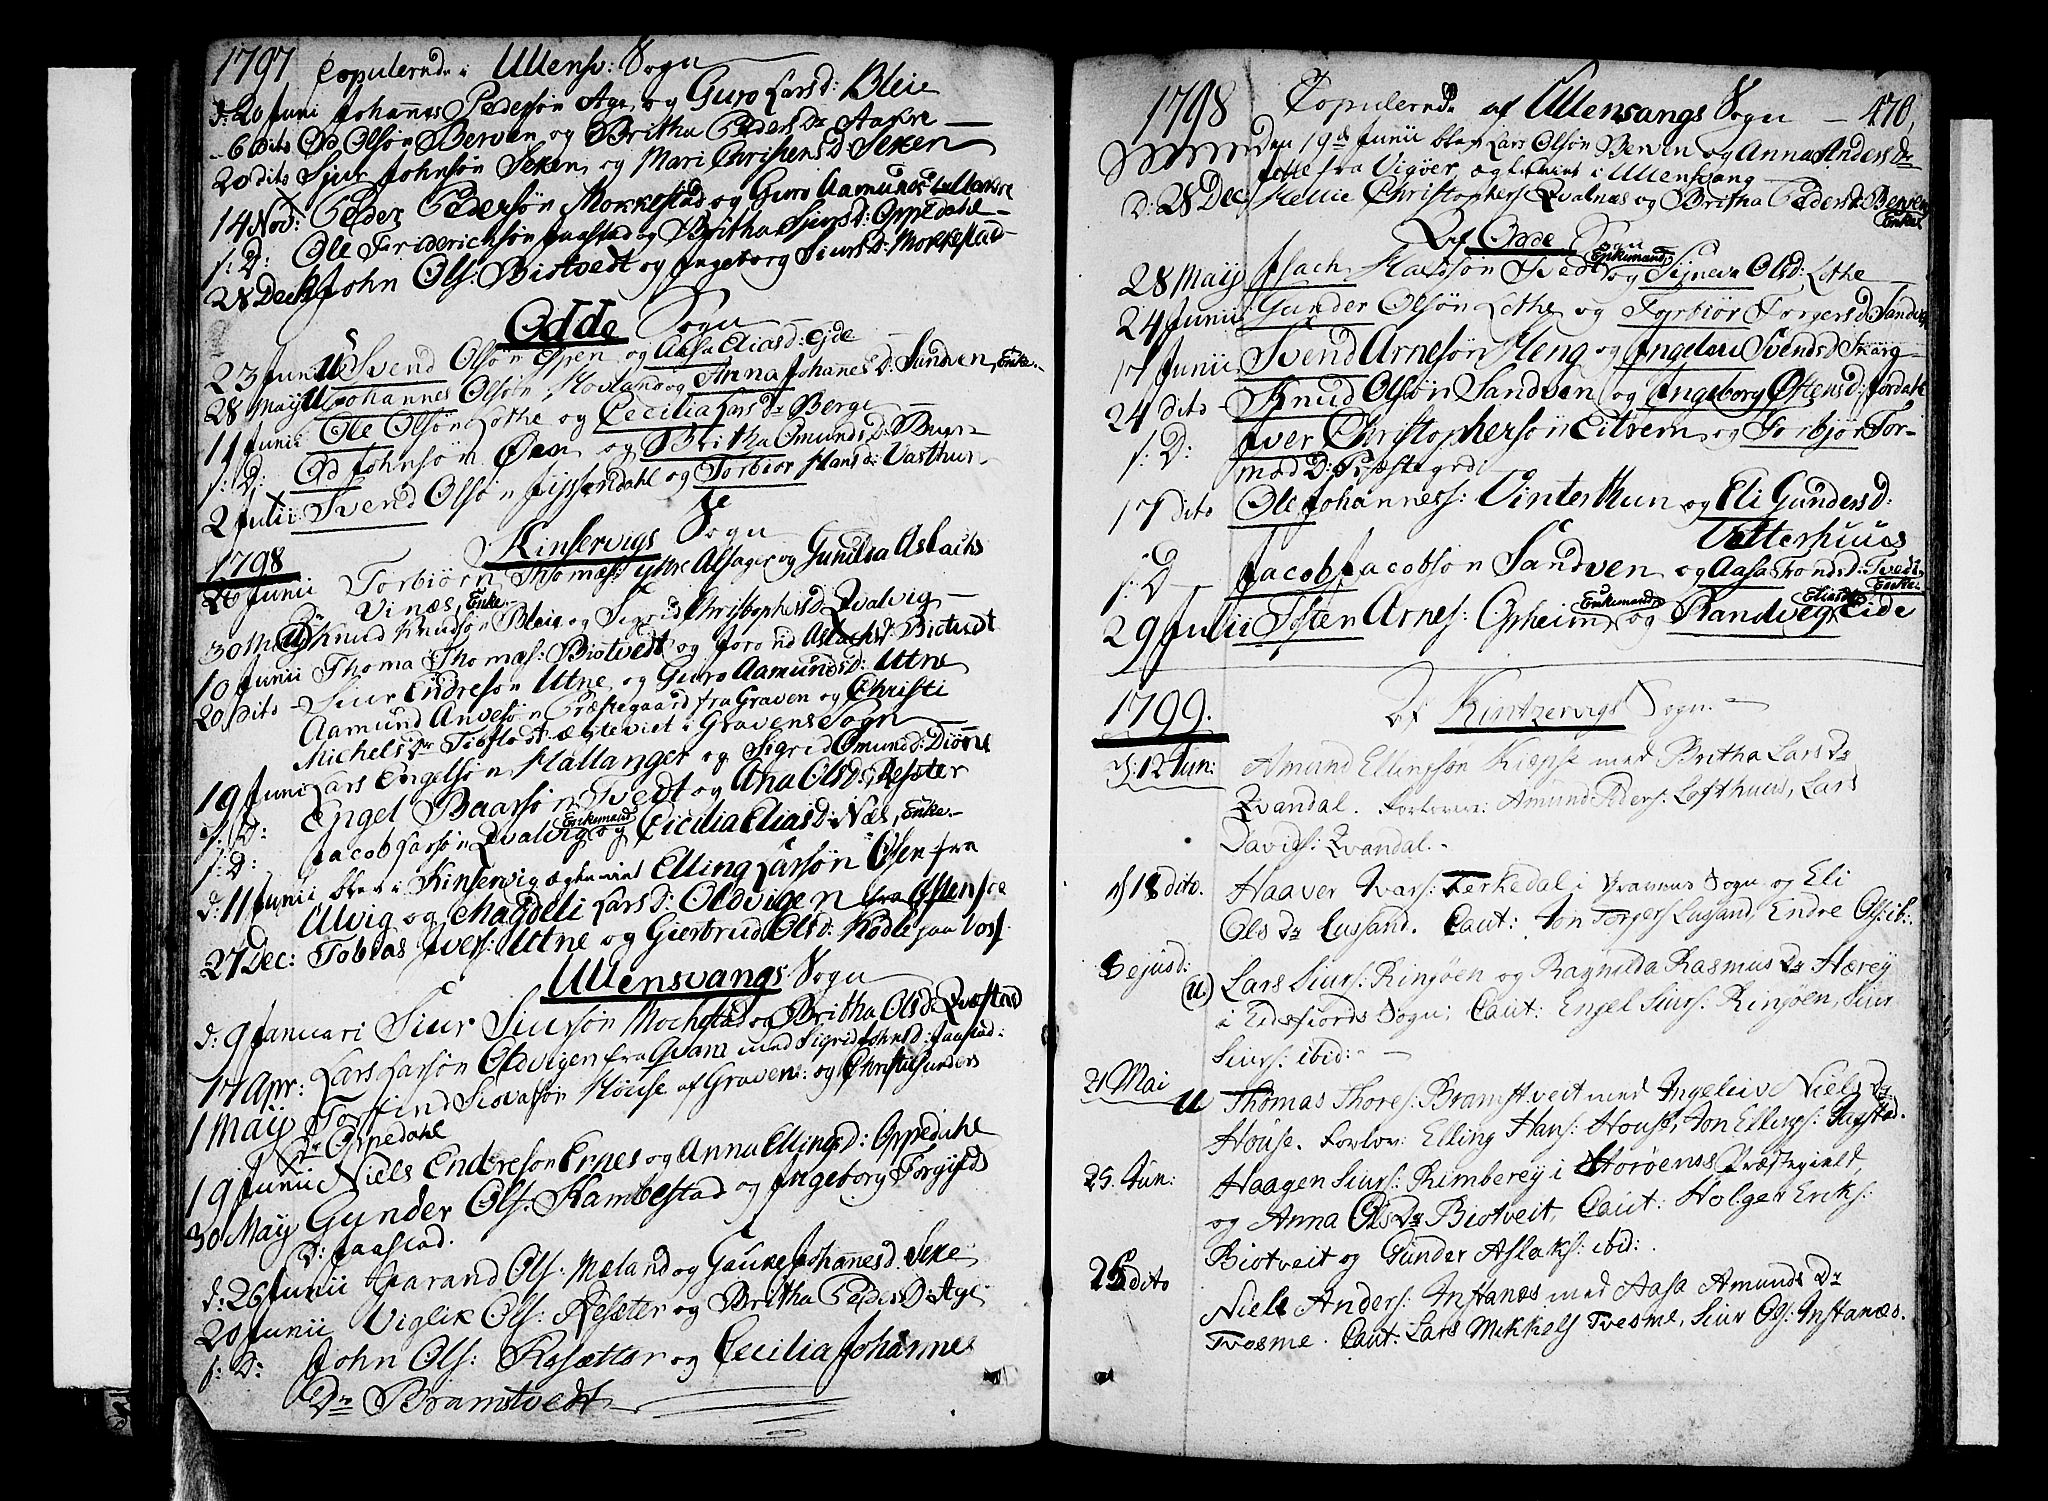 1797 Copulerede i Ullensv: Sogn
d: 20 Junii Johannes Pedersøn Age og Guro Larsd: Bleie
- 6 dito Od Olsøn Berven og Britha Peders Dr Aakre -
20 dito Siur Johnsøn Seken og Mari Christensd: Seken
14 Nov: Peder Pedersøn Mokkestad og Guro Aamunds
s: D: Ole Friderichsøn Jaastad og Britha Siursd: Oppedahl
28 Decb John Ols: Biotvedt og Ingeborg Siursd: Mokkestad
Odde Sogn
23 Junii Svend Olsøn Espen og Aasa Eliasd: Eide
28 Maij Johannes Olsøn Hovland og Anna Johanes D: Sandven, Enke.
17 Junii Ole Olsøn Lothe og Cecilia Lars Dr Berge
s: D: Od Johnsøn Øen og Britha Omunds D:
2 Julii: Svend Olsøn Jøssendahl og Torbiør Hansd: Vasthun
Kinservigs Sogn
1798
26 Junii Torbiørn Thomæs: ytre Alsager og Gunilla Aslachs
Vinæs, Enke.
30 Maij Knud Knudsøn Bleie og Sigrid Christophersd: Qvalvig
10 Junii Thoma Thomæs: Biotvedt og Jorond Aslachsd: Biotvedt
20 dito - Siur Endresøn Utne og Guro Aamundsd: Utne
Aamund Arvesøn Præstegaard fra Graven og Christi
Michels Dr Tioflot ægteviet i Gravens Sogn
19 Junii Lars Engelsøn Hallanger og Sigrid Omunds:
s: D: Engel Baarsøn Tvedt og Ana Olsd: Resæter
s: D: Jacob Larsøn Qvalvig Enkemand og Cicilia Eliasd: Næs, Enke.
d: 11 Junii blev i Kinservig ægteviet Elling Larsøn Osen fra
Ulvig og Magdeli Larsd: Oldvigen fra Østensøe
27 Dec: Tobias Ivers: Utne og Giertrud Olsd: Rødle paa Vos.
Ullensvangs Sogn
d: 9 Januari Siur Siursøn Mochestad og Britha Olsd: Qvæstad
17 Apr: Lars Larsøn Oldvigen fra Qvam med Sigrid Johnsd: Jaastad:
1 Maij Torfind Siovasøn House af Graven: og Christi Gunders
Dr Oppedahl
19 Junii Niels Endresøn Ernes og Anna Ellingsd: Oppedahl
30 Maij Gunder Ols: Kambestad og Ingeborg Torgijlds
D: Jaastad.
d: 26 Junii Harand Ols: Meland og Gaucke Johannesd: Seke
20 Junii Viglik Ols: Resæter og Britha Peders D: Age
s: D: John Ols: Resætter og Cecilia Johannes
Dr Bramstvedt
1798 Copulerede af Ullensvangs Sogn - 470,
Den 19de Junii blev Lars Olsøn Berven og Anna Anders Dr
fra Vigøer, ægteviet i Ullensvang
D: 28 Dec Hellie Christophers: Qvalnæs og Britha Pedersd: Berven
Enke
Af Odde Sogn
28 Maij Isach Haldsøn Tvedt Enkemand og Signeva Olsd: Lothe
24 Junii Gunder Olsøn Lothe og Torbiør Torgersd: Sandven
17 Junii Svend Arnesøn Heng og Ingeleri Svendsd:
24 dito - Knud Olsøn Sandven og Ingeborg Østensd: Jordahl
s: D: Iver Christophersøn Eitrem og Torbjør Tor-
mod D: Præstegrd:
17 Dito Ole Johanness: Vinterthun og Eli Gundersd:
Vetterhuus
s: D - Jacob Jacobsøn Sandven og Aasa Tronds d: Tvedt,
Enke.
29 Julii Tosten Arnes: Opheim Enkemand og Randveg Eliasdr Eide
1799. Af Kintzervigs Sogn.
d: 12 Jun: Amund Ellingsøn Kiepse med Britha Lars Dr
Qvandal. Forlover: Amund Peders: Lofthuus, Lars
Davids: Qvandal.
d 18 dito. Haaver Ivars: Ferkedal i Gravens Sogn og Eli
Ols Dr Lussand. Caut: Jon Torgers: Lussand, Endre Ols: ib:
8 ejusd: Lars Siurs: Ringøen og Ragnilda Rasmus Dr Hærey
(u) i Eidsfiords Sogn; Caut: Engel Siurs: Ringøen, Siur
Siurs: ibid:
21 Mai
u Thomas Thores: Bramstveit med Ingeleiv Niels Dr
House. Forlov: Elling Hans: House, Jon Ellings: Jaastad.
25. Jun: Haagen Siurs: Rimberey i Storøens Præstegield,
og Anna Ols Dr Biotveit, Caut: Holger Eriks:
Biotveit og Gunder Aslaks: ibid:
25 dito
Niels Anders: Instanæs med Aasa Amunds Dr
Tvesme. Caut: Lars Mikkels Tvesme, Siur Ols: Instanæs.